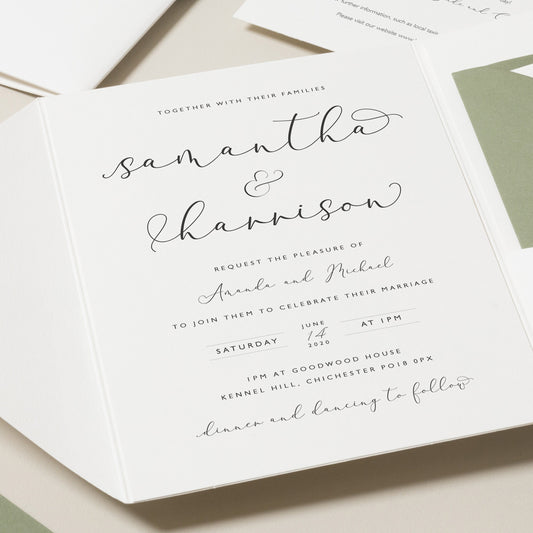 further information, such as local taxis
Please visit our website www
TOGETHER WITH THEIR FAMILIES
samantha
&
harrison
REQUEST THE PLEASURE OF
Amanda and Michael
TO JOIN THEM TO CELEBRATE THEIR MARRIAGE
SATURDAY
JUNE
14
2020
AT 1PM
1PM AT GOODWOOD HOUSE
KENNEL HILL, CHICHESTER PO18 0PX
dinner and dancing to follow